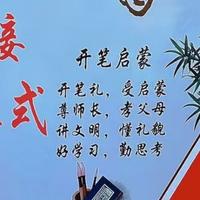 接
式
开笔启蒙
开笔礼，受启蒙
尊师长，孝父母
讲文明，懂礼貌
好学习，勤思考